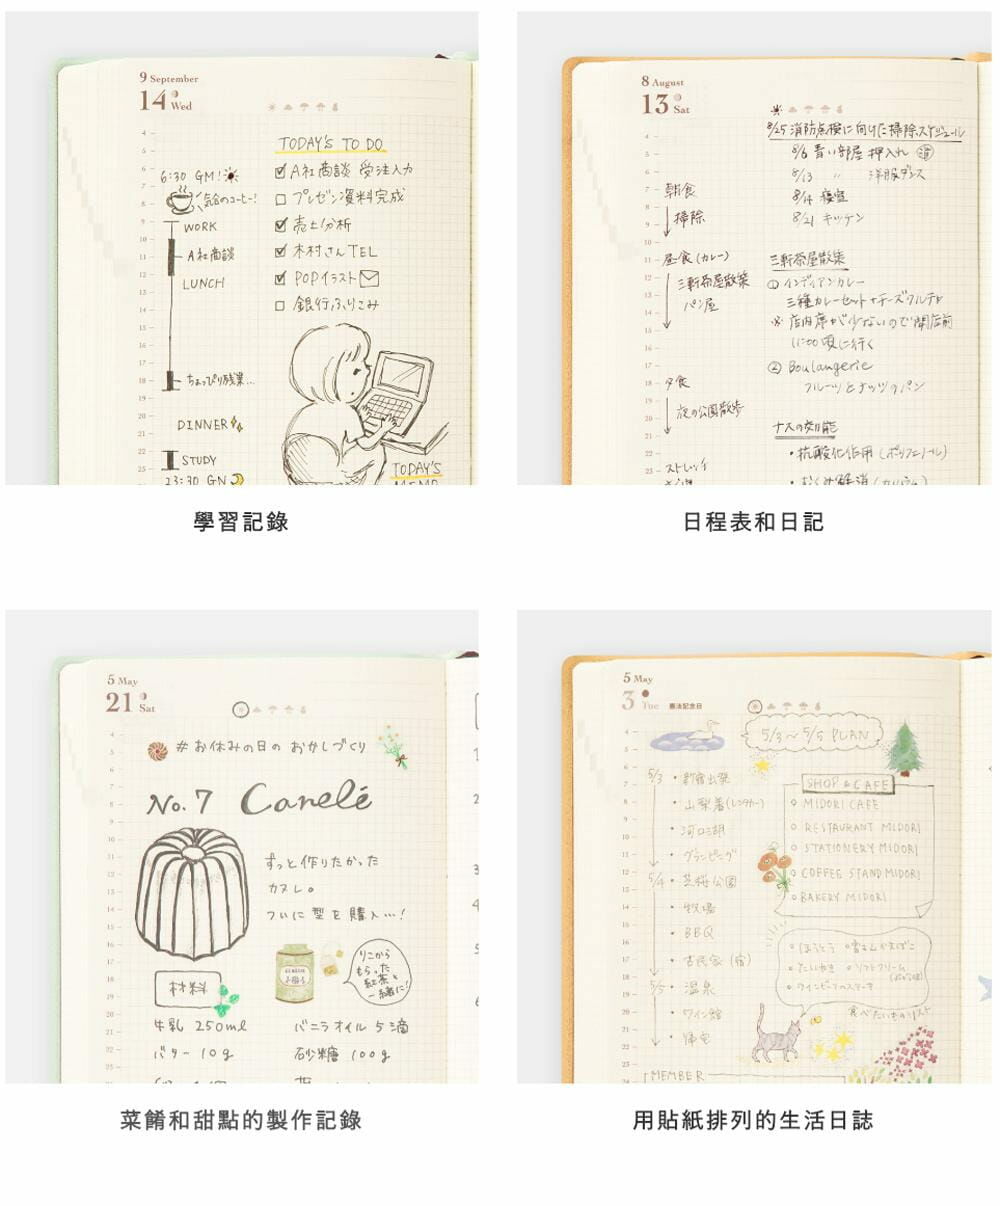 9 September
14 Wed
TODAY'S TO DO
A社商談 受注入力
プレゼン資料完成
売上分析
木村さんTEL
POPイラスト
銀行ふりこみ
6:30 GM!
気合のコーヒー!
WORK
A社商談
LUNCH
ちょっぴり残業…
DINNER
STUDY
23:30 GN
TODAY'S
學習記錄
8 August
13 Sat
8/25 消防点検に向けた掃除スケジュール
8/6 青い部屋 押入れ 済
8/13 〃 洋服ダンス
8/14 寝室
8/21 キッチン
朝食
掃除
昼食(カレー)
三軒茶屋散策
パン屋
夕食
夜の公園散歩
ストレッチ
三軒茶屋散策
① インディアンカレー
三種カレーセット+チーズクルチャ
※ 店内席が少ないので開店前
11:00頃に行く
② Boulangerie
フルーツとナッツのパン
ナスの効能
・抗酸化作用(ポリフェノール)
・むくみ解消(カリウム)
日程表和日記
5 May
21 Sat
#お休みの日の おかしづくり
No.7 Canelé
ずっと作りたかった
カヌレ。
ついに 型を購入…!
りこから
もらった
紅茶と
一緒に!
材料
牛乳 250ml
バニラオイル 5滴
バター 10g
砂糖 100g
菜餚和甜點的製作記錄
5 May
3 Tue 憲法記念日
5/3~5/5 PLAN
5/3 ・新宿出発
・山梨着(レンタカー)
・河口湖
・グランピング
5/4 ・芝桜公園
・牧場
・BBQ
・古民家(宿)
5/5 ・温泉
・ワイン館
・帰宅
SHOP & CAFE
MIDORI CAFE
RESTAURANT MIDORI
STATIONERY MIDORI
COFFEE STAND MIDORI
BAKERY MIDORI
ほうとう ・富士山かまぼこ
たいやき ・ソフトクリーム
ワインビーフのステーキ
食べたいものリスト
MEMBER
用貼紙排列的生活日誌